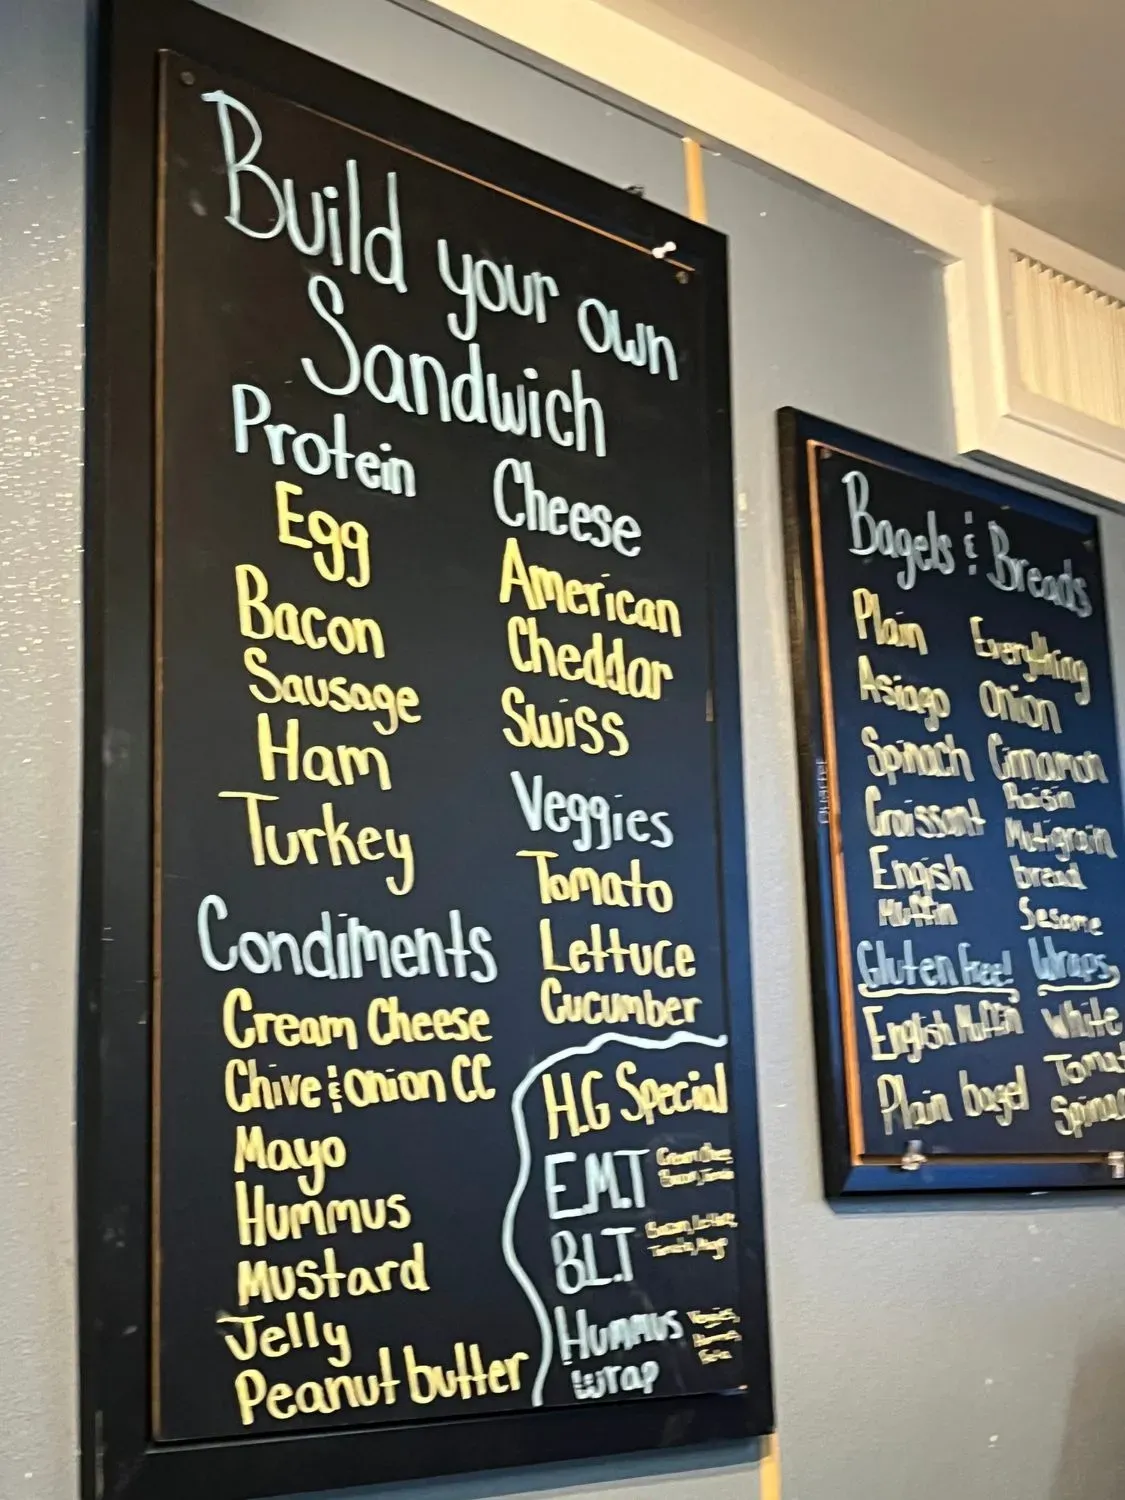 Build your own
Sandwich
Protein
Egg
Bacon
Sausage
Ham
Turkey
Condiments
Cream Cheese
Chive & Onion CC
Mayo
Hummus
Mustard
Jelly
Peanut butter
Cheese
American
Cheddar
Swiss
Veggies
Tomato
Lettuce
Cucumber
H.G Special
E.M.T
B.L.T
Bacon, Lettuce,
Tomato, Mayo
Hummus
Wrap
Veggies,
Bagels & Breads
Plain
Asiago
Spinach
Croissant
Engish
Muffin
Everything
Onion
Cinnamon
Raisin
Multigrain
bread
Sesame
Gluten free!
English Muffin
Plain bagel
Wraps
White